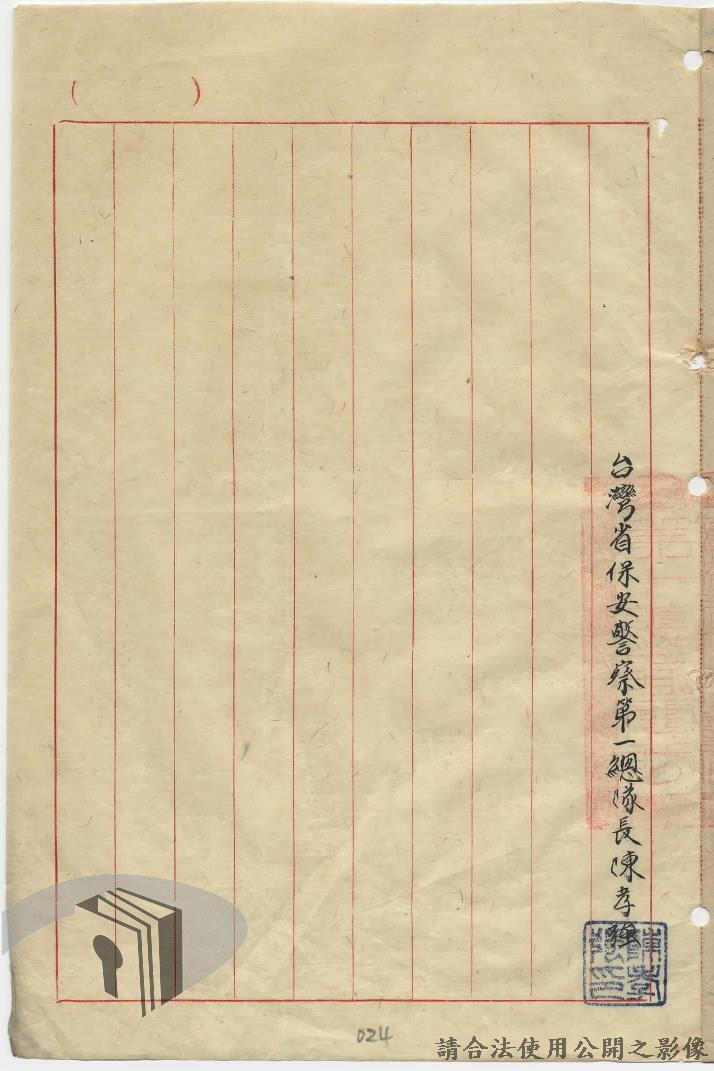 ( )
台灣省保安警察第一總隊長陳孝強
陳孝
強印
024
請合法使用公開之影像